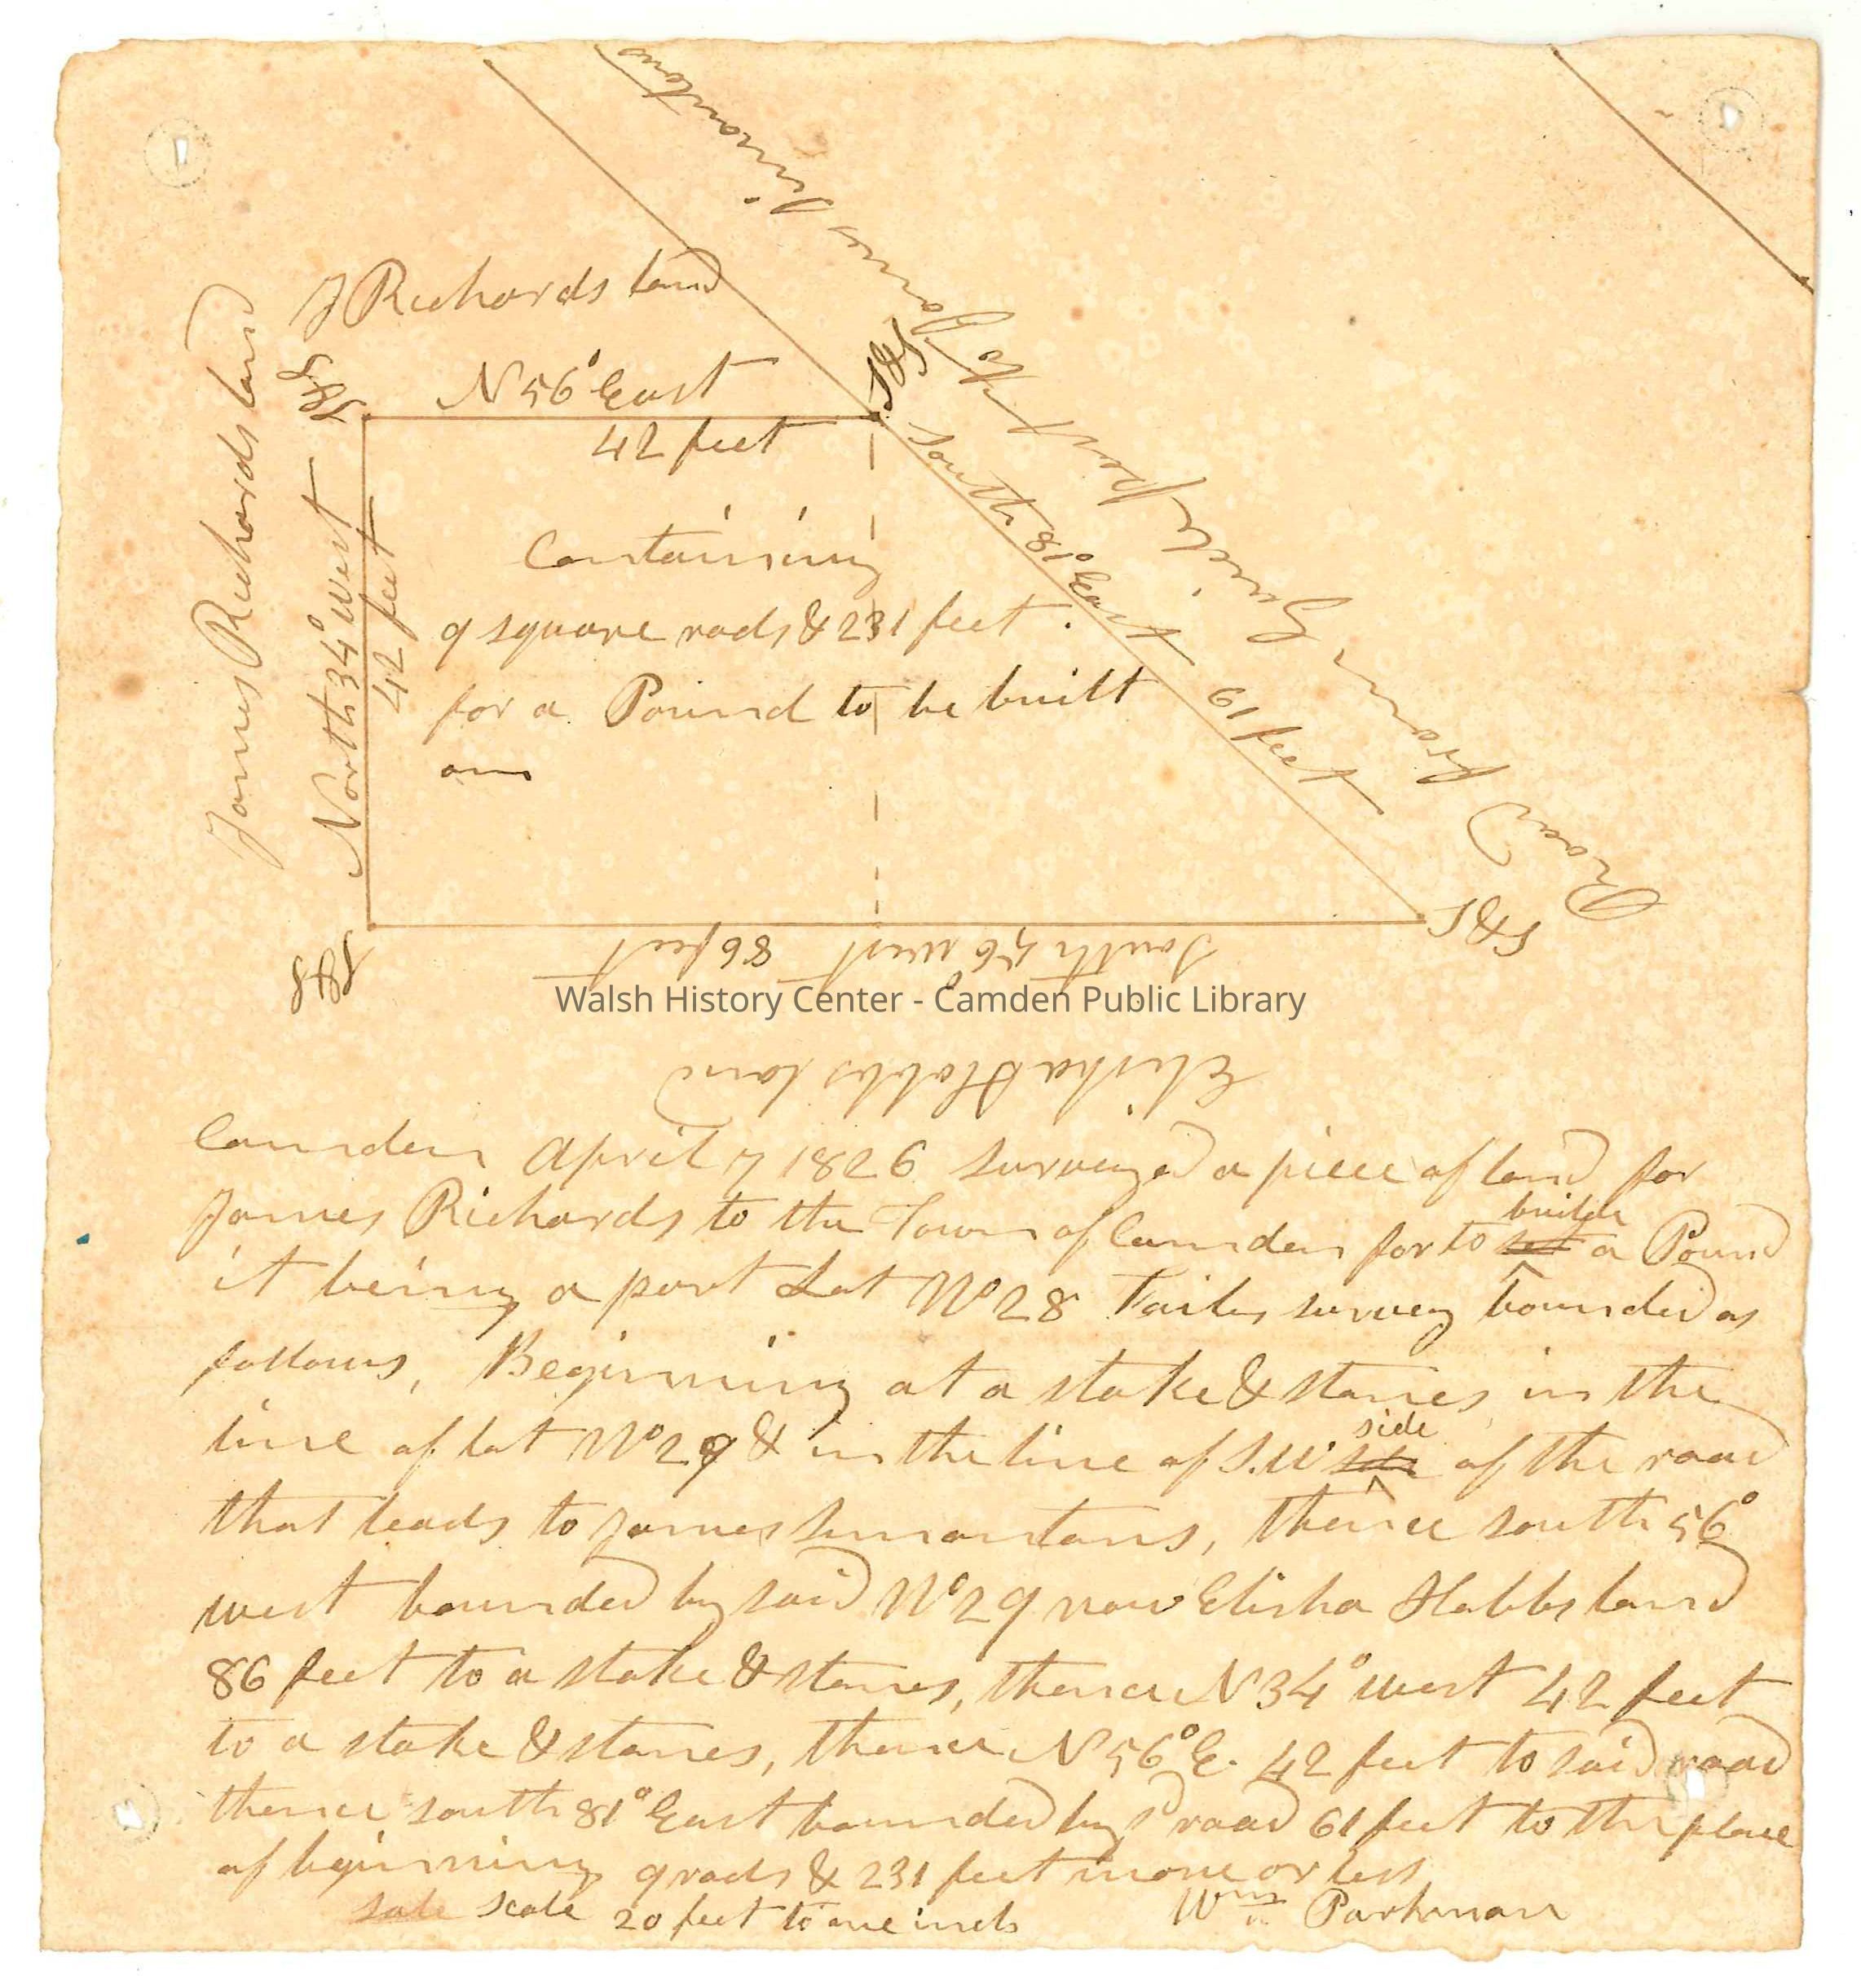 J Richards land
N 56° East
42 feet
S&S
S&S
James Richards land
North 34° West
42 feet
Road from Guide post to James Simontons
South 81° East 61 feet
Containing
9 square rods & 231 feet.
for a Pound to be built
on
S&S
S&S
South 56° west 86 feet
Walsh History Center - Camden Public Library
Elisha Hobbs land
Camden April 7 1826 surveyed a piece of land for
James Richards to the Town of Camden for to set builde a Pound
it being a part Lot No 28 Failes survey bounded as
follows, Beginning at a stake & stones in the
line of lot No 29 & in the line of S.W side of the road
that leads to James Simontons, thence south 56°
west bounded by said No 29 now Elisha Hobbs land
86 feet to a stake & stones, thence N 34° west 42 feet
to a stake & stones, thence N 56° E. 42 feet to said road
thence south 81° East bounded by sd road 61 feet to the place
of beginning 9 rods & 231 feet more or less
sale scale 20 feet to one inch
Wm Parkman